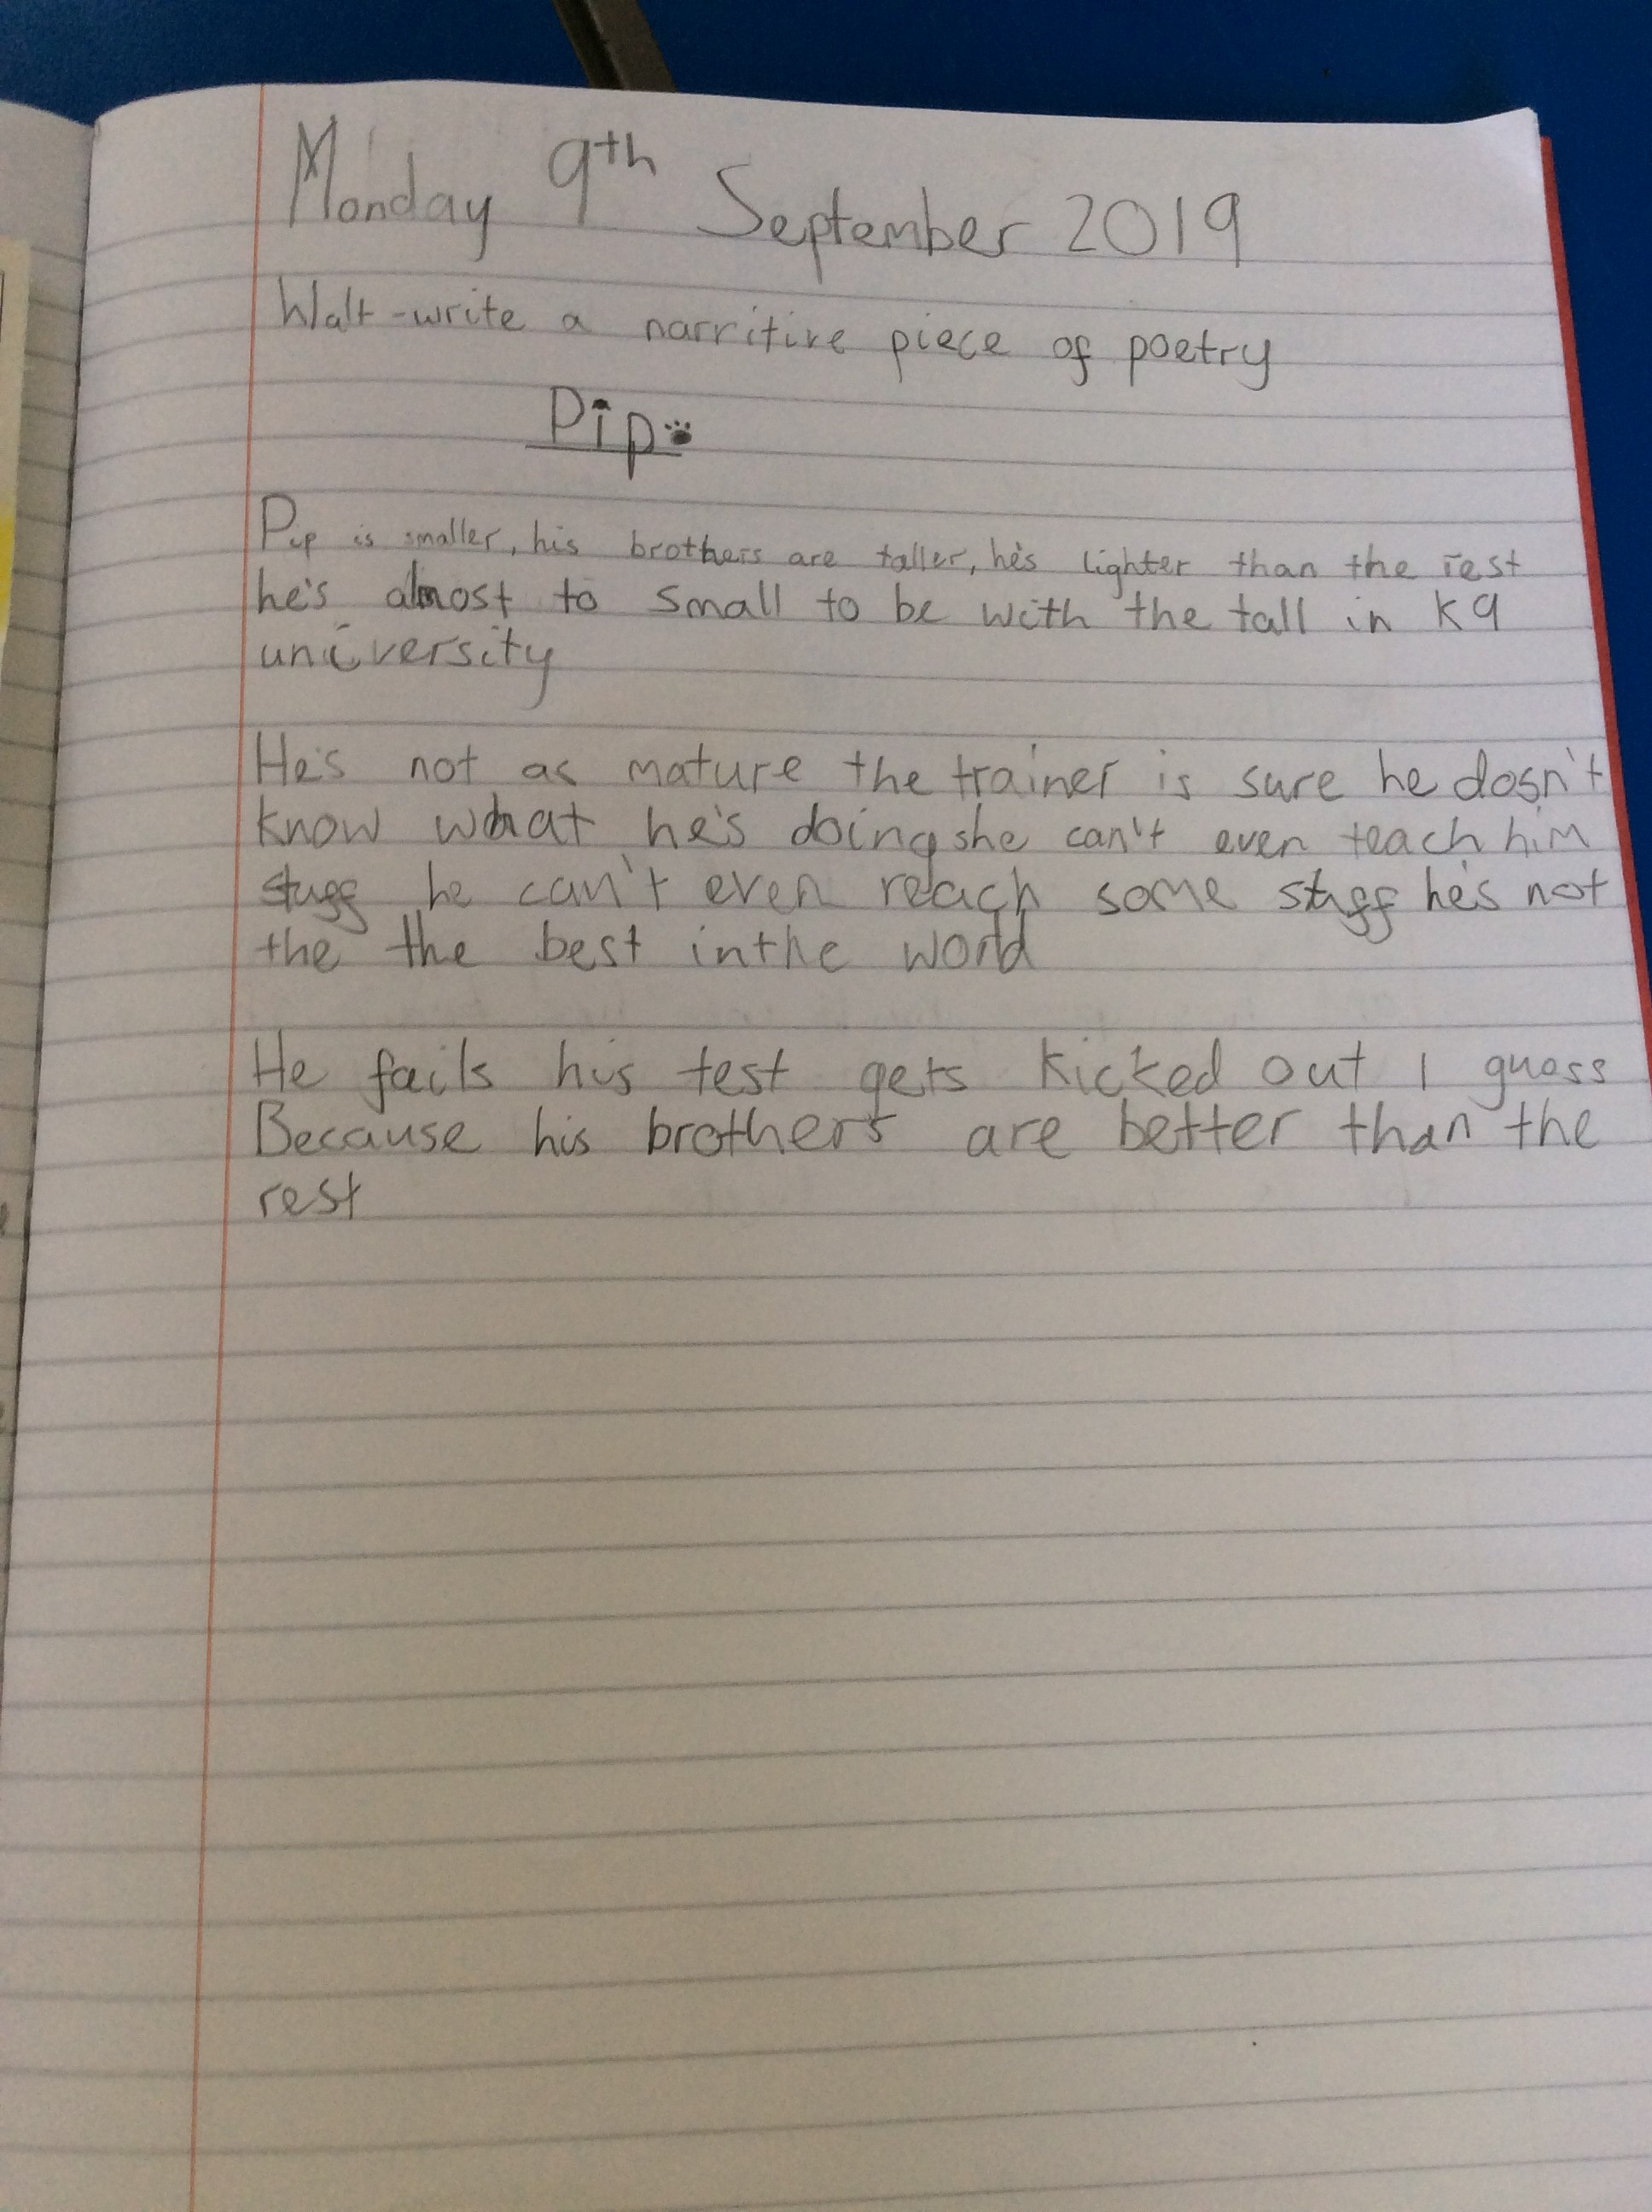 Monday 9th September 2019
Walt - write a narritive piece of poetry
Pip
Pip is smaller, his brothers are taller, he's lighter than the rest
he's almost to small to be with the tall in K9
university
He's not as mature the trainer is sure he dosn't
know what he's doing she can't even teach him
stuff he can't even reach some stuff he's not
the the best in the world
He fails his test gets kicked out I guess
Because his brothers are better than the
rest